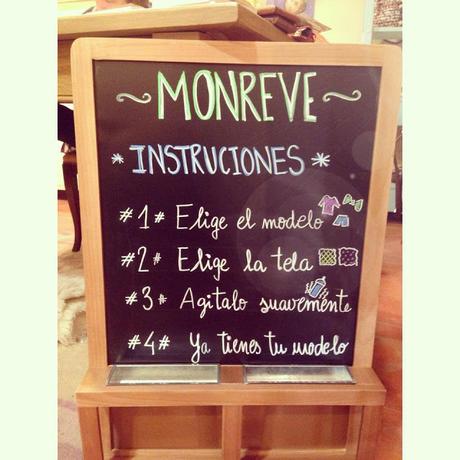 ~ MONREVE ~
* INSTRUCIONES *
#1# Elige el modelo
#2# Elige la tela
#3# Agitalo suavemente
#4# Ya tienes tu modelo